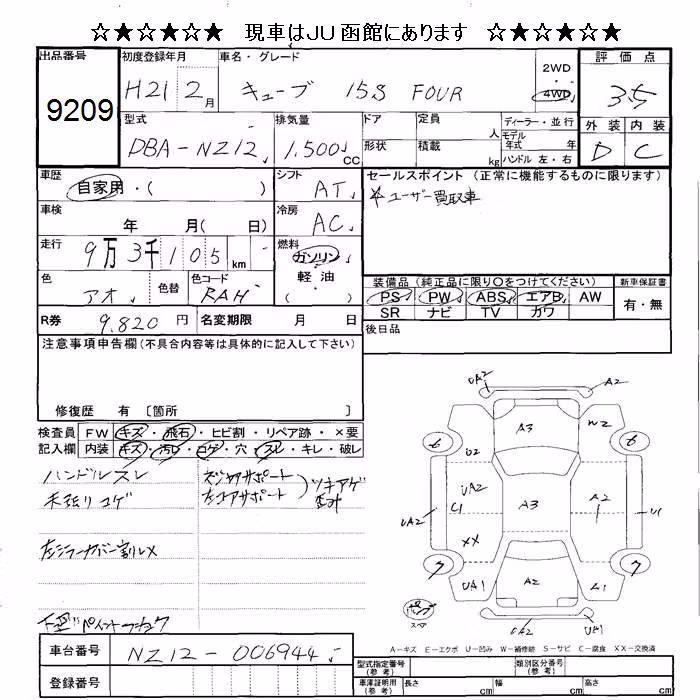 ☆★☆★☆★ 現車はJU函館にあります ☆★☆★☆★
出品番号 初度登録年月 車名・グレード 2WD 評価点
9209 H21 2月 キューブ 15S FOUR 4WD 3.5
型式 排気量 ドア 定員 人 ディーラー・並行 外装 内装
モデル年式 年
DBA-NZ12 1,500cc 形状 積載 kg ハンドル 左・右 D C
車歴 シフト セールスポイント (正常に機能するものに限ります)
自家用・( ) AT ユーザー買取車
車検 冷房
年 月( 日) AC
走行 燃料
9万3千105km ガソリン
色 色替 色コード 軽油 装備品 (純正品に限り○をつけてください) 新車保証書
アオ RAH ( ) PS PW ABS エアB AW 有・無
R券 9,820円 名変期限 月 日 SR ナビ TV カワ
後日品
注意事項申告欄(不具合内容等は具体的に記入して下さい)
修復歴 有 〔箇所 〕
検査員 FW キズ・飛石・ヒビ割・リペア跡・×要
記入欄 内装 キズ・汚レ・コゲ・穴・スレ・キレ・破レ
ハンドルスレ
天張りコゲ
左コアサポート
ツキアゲ
左ミラーカバー割レX
UA2 A2
A3 W2
U2
UA2 C1 A3 A2
UA2 U1
XX
UA1 A2 A1
スペア
UA2 UA1
A-キズ E-エクボ U-凹み W-補修跡 S-サビ C-腐食 XX-交換済
車台番号 NZ12-006944
登録番号
型式指定番号(参考) 類別区分番号(参考)
車庫証明用(参考) 長さ cm 幅 cm 高さ cm